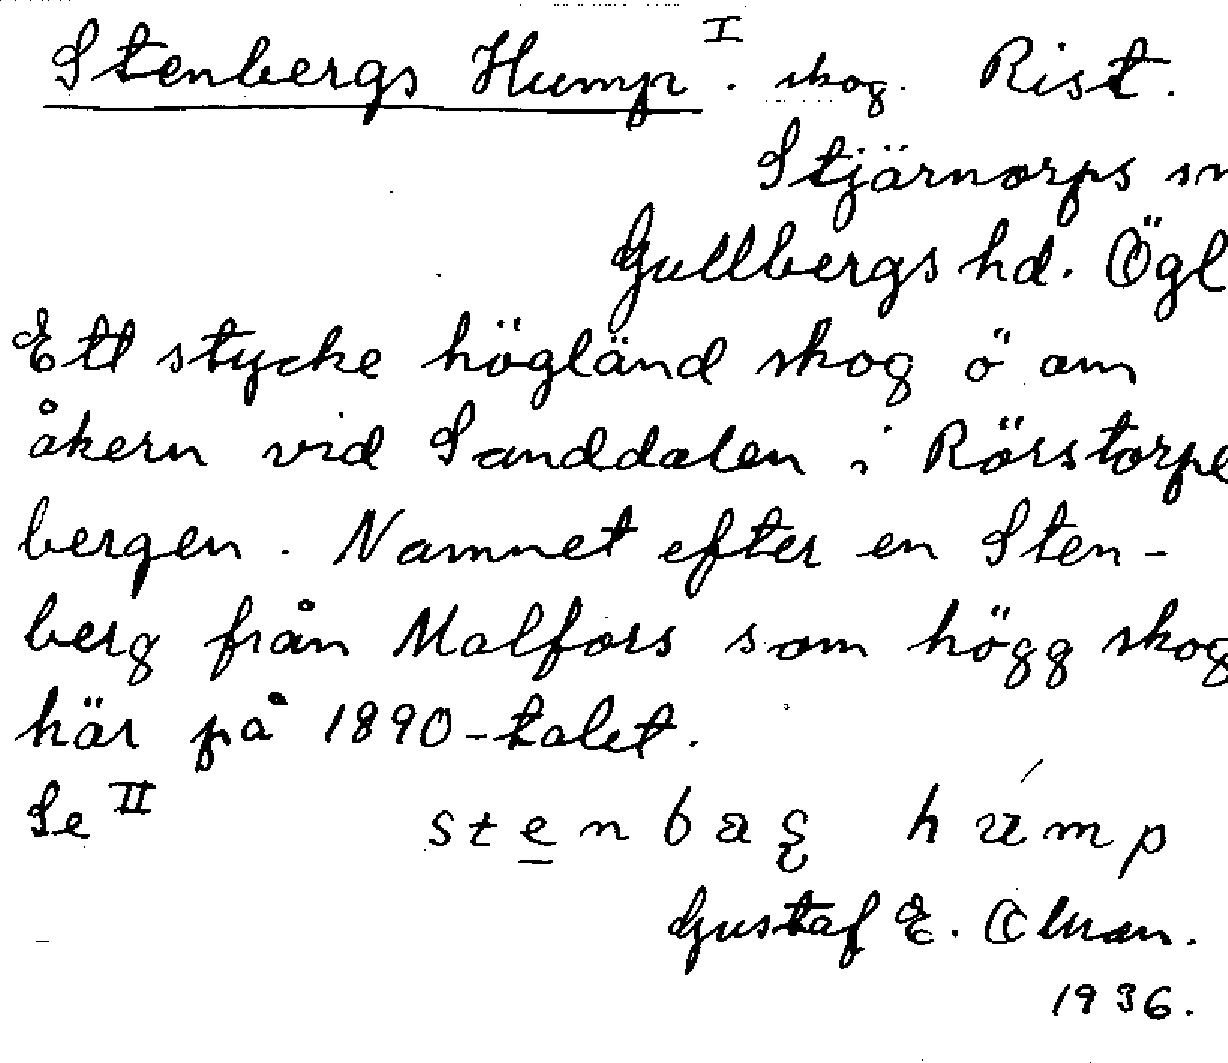 Stenbergs Hump I. skog. Rist.
Stjärnorps sn
Gullbergs hd. Ögl
Ett stycke högländ skog ö om
åkern vid Sanddalen i Rörstorps
bergen. Namnet efter en Sten-
berg från Malfors som högg skog
här på 1890-talet.
Se II
Gustaf E.
1936.